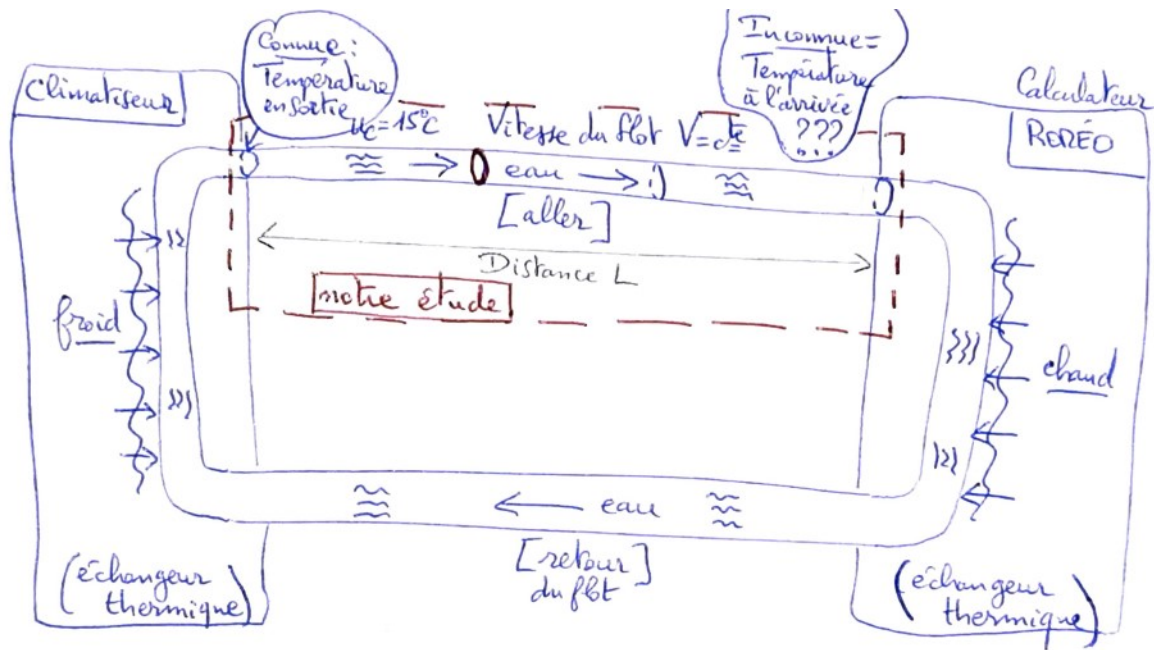 Climatiseur
Connue :
Température
en sortie
uc = 15°C
Vitesse du flot V = cte
Inconnue =
Température
à l'arrivée
???
...
Calculateur
ROMÉO
eau
[aller]
Distance L
notre étude
froid
chaud
eau
[retour]
du flot
(échangeur
thermique)
(échangeur
thermique)